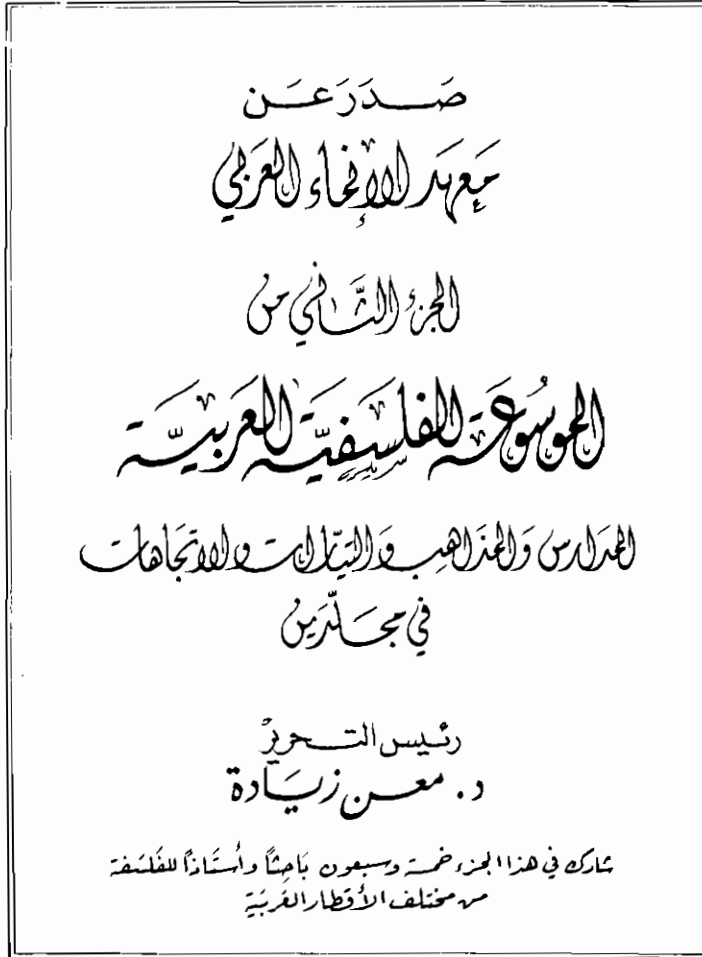 صَدَرَ عَن
مَعهَد الإنماء العَرَبي
الجزء الثَّاني من
الموسُوعَة الفلسَفيَّة العَربيَّة
المدَارس وَالمذَاهِب وَالتيّارات والاتجَاهات
في مجَلّدَين
رئيس التحرير
د. معن زيَادة
شارك في هذا الجزء خمسة وسبعون بَاحِثاً وأستَاذاً للفَلسَفة
من مختلف الأقطار العَربيَة